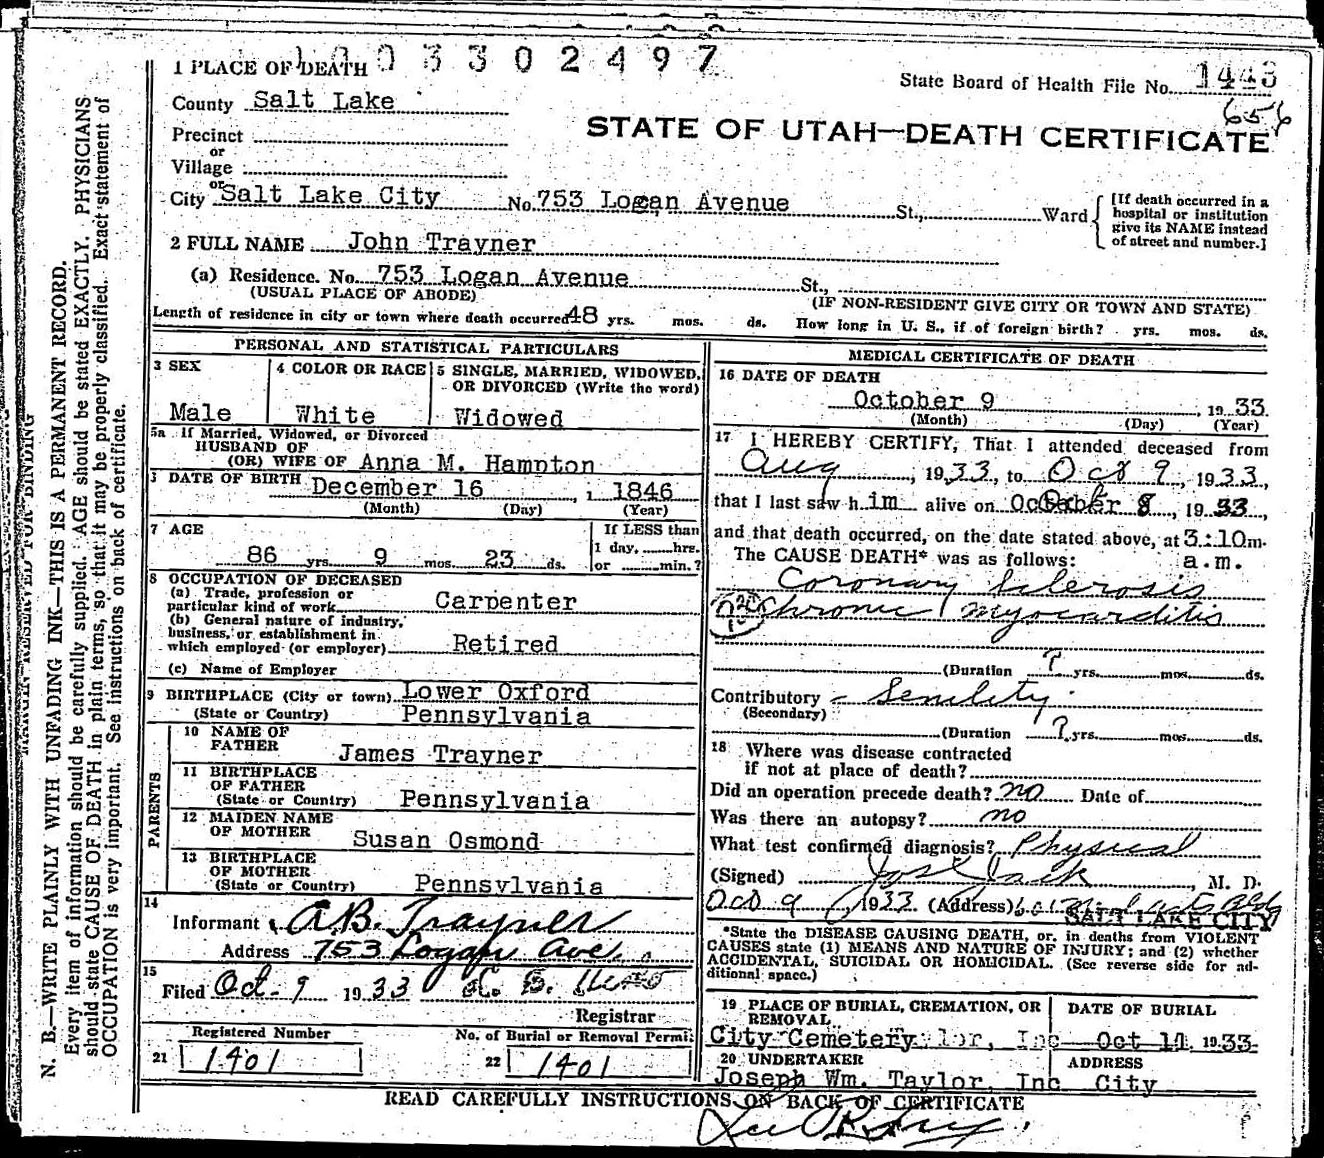 1 0 0 3 3 0 2 4 9 7
1 PLACE OF DEATH
State Board of Health File No. 1443
656
County Salt Lake
STATE OF UTAH—DEATH CERTIFICATE
Precinct
or
Village
or
City Salt Lake City No. 753 Logan Avenue St., Ward
[If death occurred in a
hospital or institution
give its NAME instead
of street and number.]
2 FULL NAME John Trayner
(a) Residence. No. 753 Logan Avenue St.,
(USUAL PLACE OF ABODE)
(IF NON-RESIDENT GIVE CITY OR TOWN AND STATE)
Length of residence in city or town where death occurred 48 yrs. mos. ds. How long in U. S., if of foreign birth? yrs. mos. ds.
PERSONAL AND STATISTICAL PARTICULARS
3 SEX
Male
4 COLOR OR RACE
White
5 SINGLE, MARRIED, WIDOWED,
OR DIVORCED (Write the word)
Widowed
5a If Married, Widowed, or Divorced
HUSBAND OF
(OR) WIFE OF Anna M. Hampton
DATE OF BIRTH December 16, 1846
(Month) (Day) (Year)
7 AGE
86 yrs. 9 mos. 23 ds.
If LESS than
1 day, hrs.
or min.?
8 OCCUPATION OF DECEASED
(a) Trade, profession or
particular kind of work Carpenter
(b) General nature of industry,
business, or establishment in
which employed (or employer) Retired
(c) Name of Employer
9 BIRTHPLACE (City or town) Lower Oxford
(State or Country) Pennsylvania
PARENTS
10 NAME OF
FATHER James Trayner
11 BIRTHPLACE
OF FATHER
(State or Country) Pennsylvania
12 MAIDEN NAME
OF MOTHER Susan Osmond
13 BIRTHPLACE
OF MOTHER
(State or Country) Pennsylvania
14
Informant A.B. Trayner
Address 753 Logan Ave.
15
Filed Oct. 9 1933
Registrar
Registered Number
21 1401
No. of Burial or Removal Permit
22 1401
MEDICAL CERTIFICATE OF DEATH
16 DATE OF DEATH
October 9, 1933
(Month) (Day) (Year)
17 I HEREBY CERTIFY, That I attended deceased from
Aug, 1933, to Oct 9, 1933,
that I last saw him alive on October 8, 1933,
and that death occurred, on the date stated above, at 3:10 m.
The CAUSE DEATH* was as follows: a.m.
Coronary Sclerosis
Chronic myocarditis
(Duration ? yrs. mos. ds.
Contributory - Senility.
(Secondary)
(Duration ? yrs. mos. ds.
18 Where was disease contracted
if not at place of death?
Did an operation precede death? no Date of
Was there an autopsy? no
What test confirmed diagnosis? Physical
(Signed) Jos Jack, M. D.
Oct 9, 1933 (Address)
SALT LAKE CITY
*State the DISEASE CAUSING DEATH, or, in deaths from VIOLENT
CAUSES state (1) MEANS AND NATURE OF INJURY; and (2) whether
ACCIDENTAL, SUICIDAL OR HOMICIDAL. (See reverse side for ad-
ditional space.)
19 PLACE OF BURIAL, CREMATION, OR
REMOVAL
City Cemetery
DATE OF BURIAL
Oct 11 1933
20 UNDERTAKER
Joseph Wm. Taylor, Inc
ADDRESS
City
READ CAREFULLY INSTRUCTIONS ON BACK OF CERTIFICATE
MARGIN RESERVED FOR BINDING
N. B.—WRITE PLAINLY WITH UNFADING INK—THIS IS A PERMANENT RECORD.
Every item of information should be carefully supplied. AGE should be stated EXACTLY. PHYSICIANS
should state CAUSE OF DEATH in plain terms, so that it may be properly classified. Exact statement of
OCCUPATION is very important. See instructions on back of certificate.